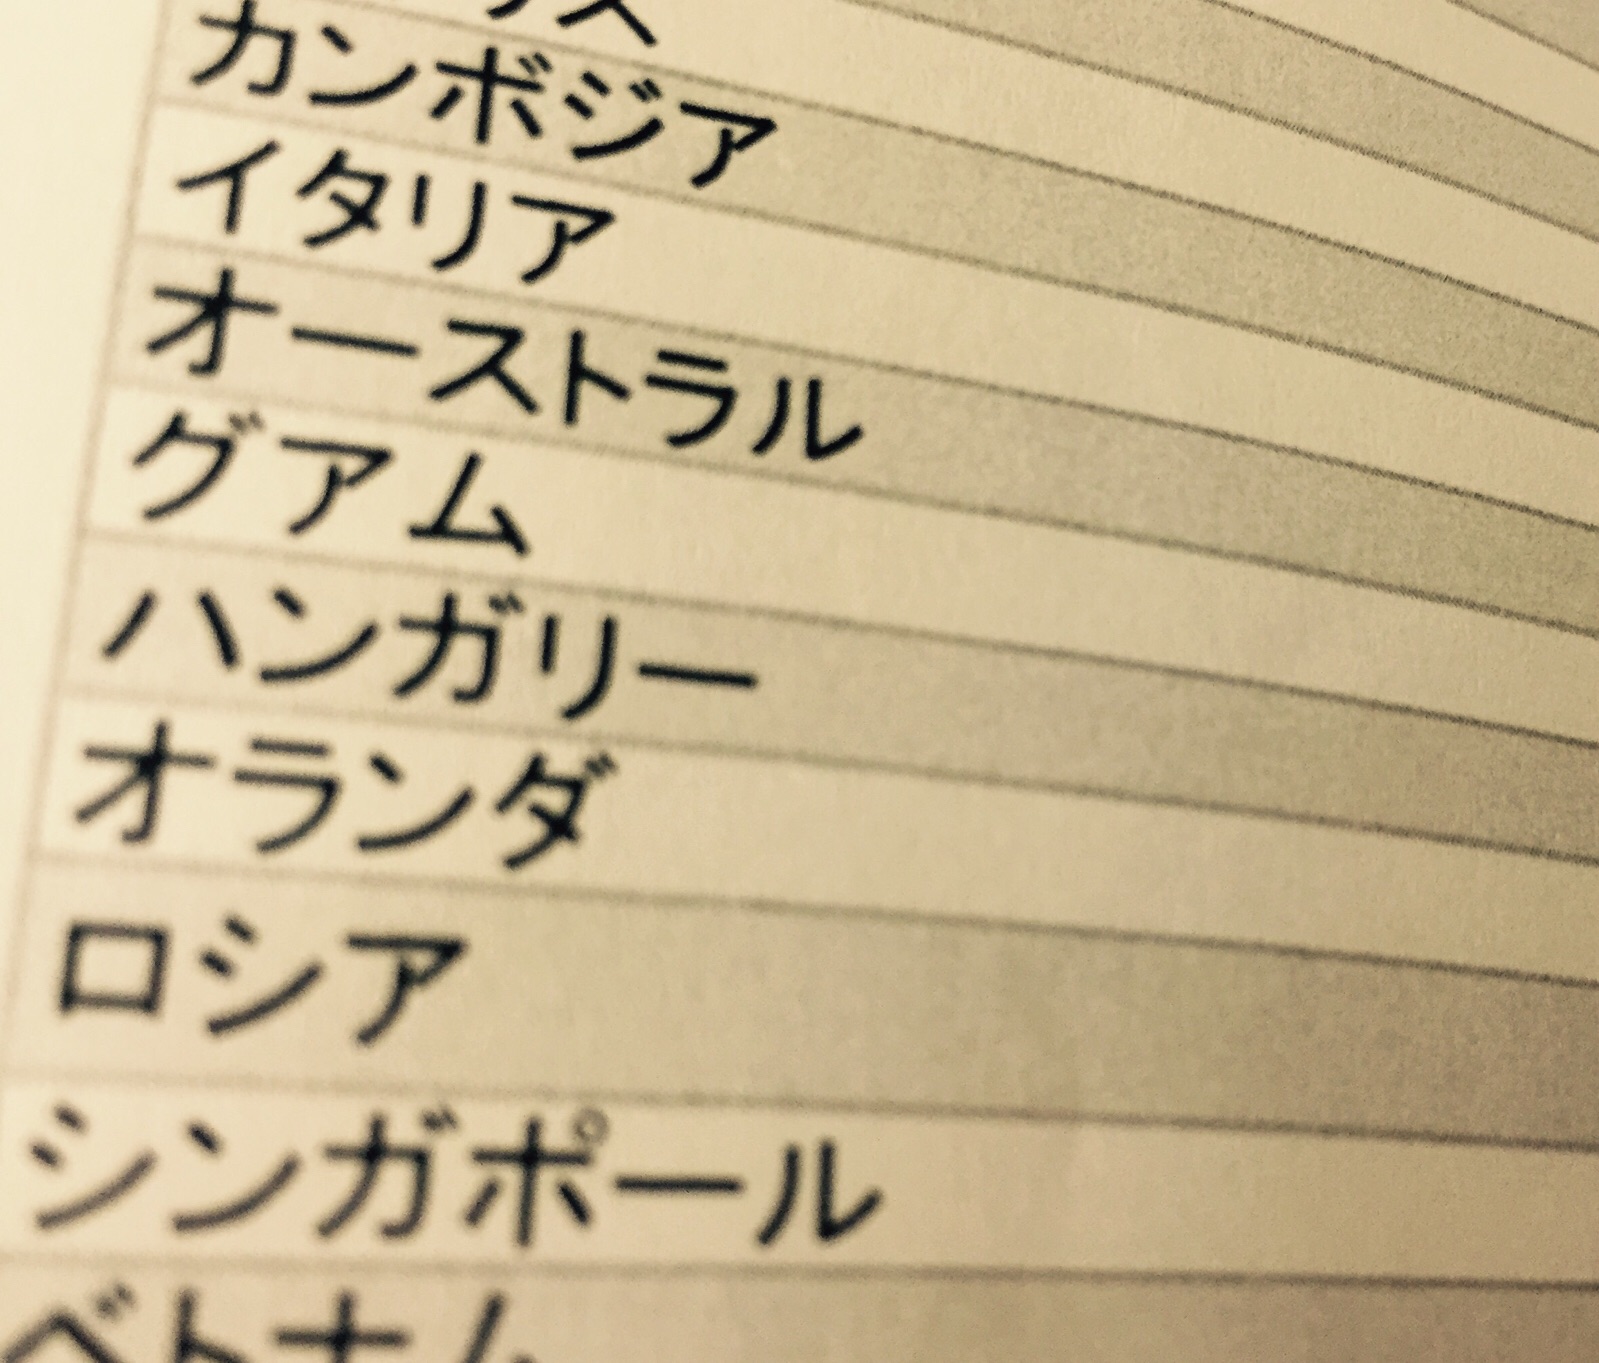 カンボジア
イタリア
オーストラル
グアム
ハンガリー
オランダ
ロシア
シンガポール
ベトナム